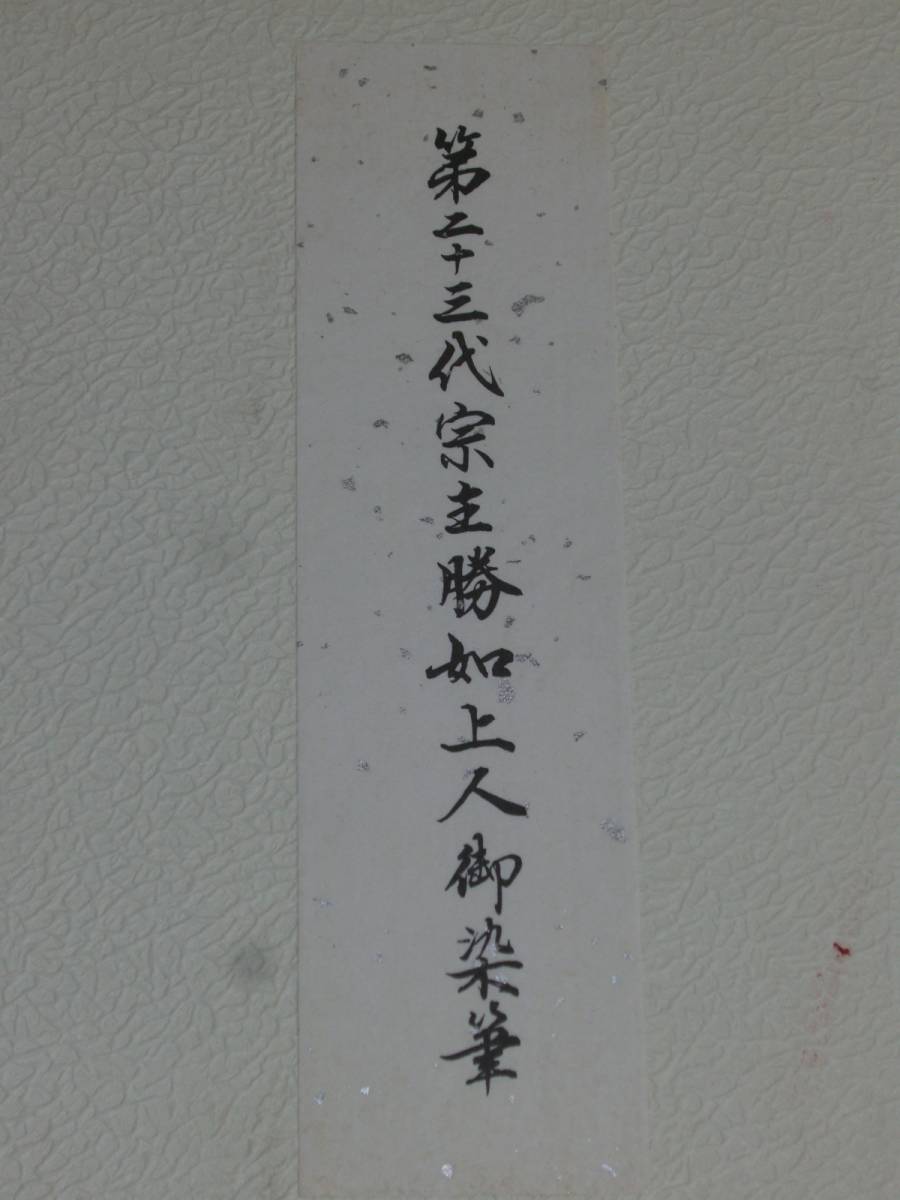 第二十三代宗主勝如上人御染筆